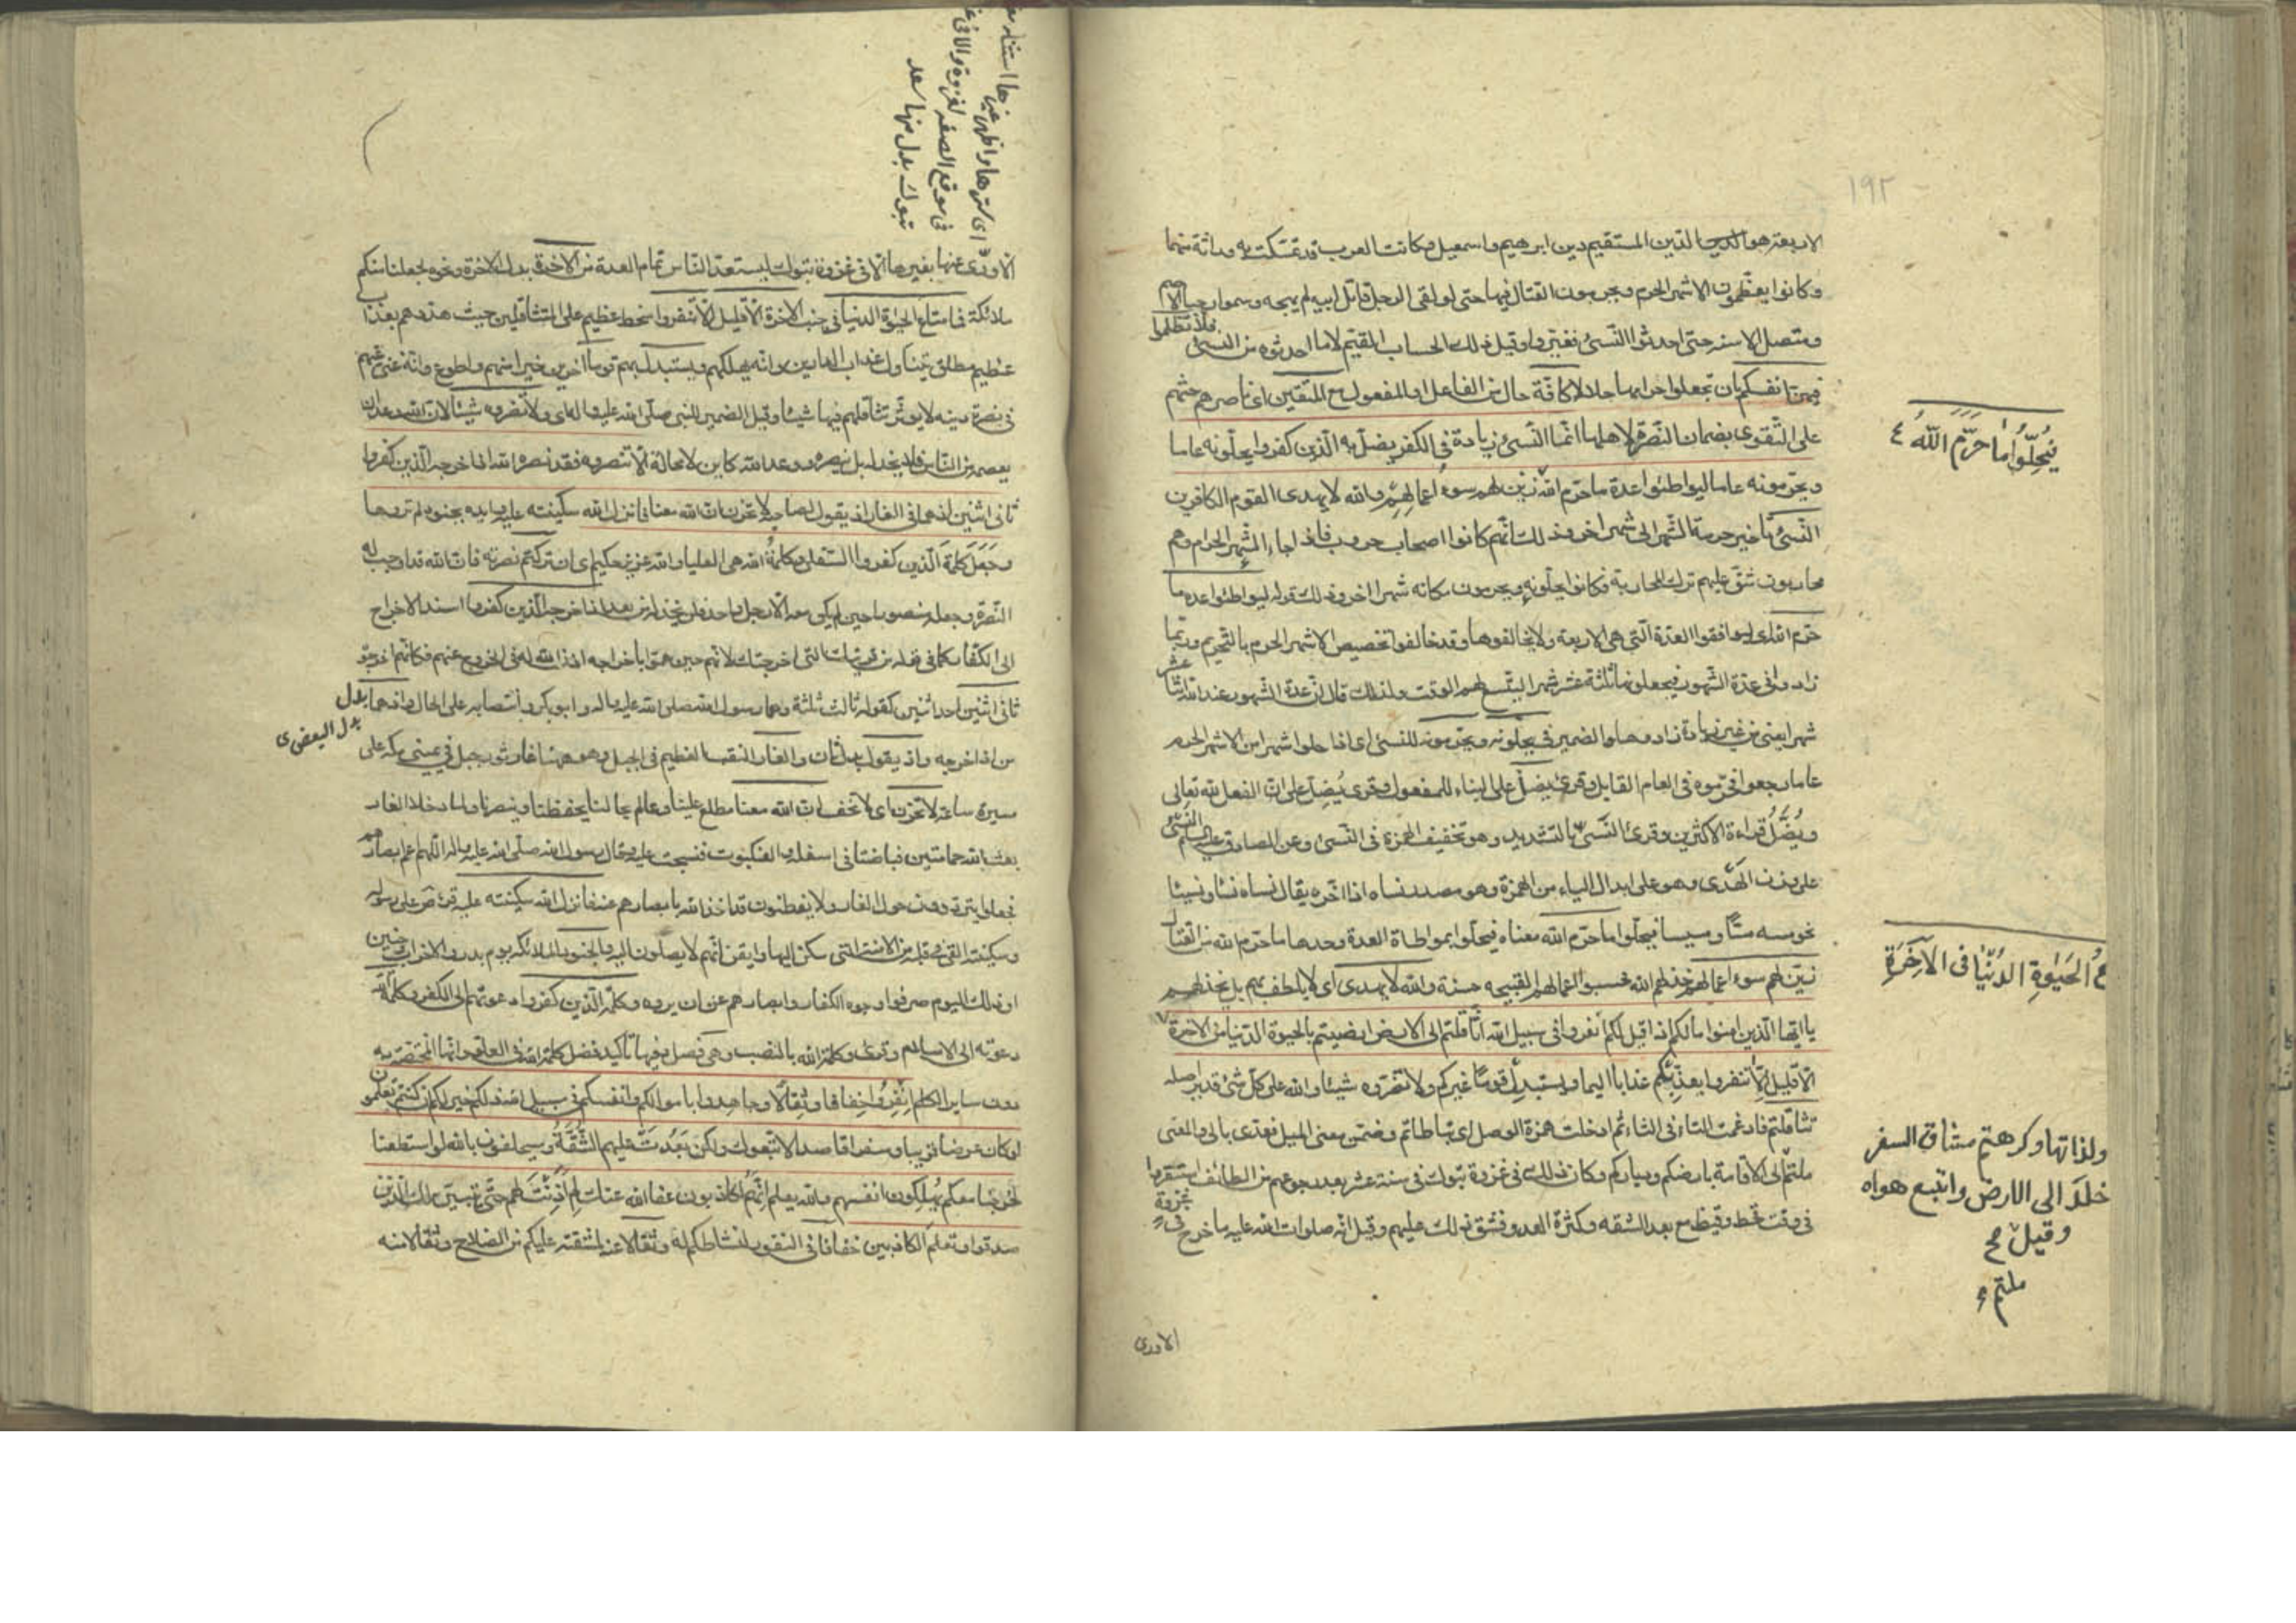 ١٩٢
الاربعة هو الدين المستقيم دين ابرهيم واسمعيل وكانت العرب قد تمسكت به وراثة منهما
وكانوا يعظمون الاشهر الحرم ويحرمون القتال فيها حتى لو لقى الرجل قاتل ابيه لم يهجه وسموا رجبا الاصم
ومنصل الاسنه حتى احدثوا النسئ فغيروا وقيل ذلك الحساب المقيم لا ما احدثوه من النسئ فلا تظلموا
فيهن انفسكم بان تجعلوا حرامها حلالا كافة حال من الفاعل او المفعول مع المتقين اى ناصرهم حثهم
على التقوى بضمان النصرة لاهلها انما النسئ زيادة فى الكفر يضل به الذين كفروا يحلونه عاما
ويحرمونه عاما ليواطئوا عدة ما حرم الله زين لهم سوء اعمالهم والله لا يهدى القوم الكافرين
فيحلوا ما حرم الله
النسئ تاخير حرمة الشهر الى شهر اخر وذلك انهم كانوا اصحاب حروب فاذا جاء الشهر الحرام وهم
محاربون شق عليهم ترك المحاربة فكانوا يحلونه ويحرمون مكانه شهرا اخر وذلك قوله ليواطئوا عدة ما
حرم الله اى ليوافقوا العدة التى هى الاربعة ولا يخالفوها وقد خالفوا تخصيص الاشهر الحرم بالتحريم وربما
زادوا فى عدة الشهور فيجعلونها ثلثة عشر شهرا ليتسع لهم الوقت ولذلك قال ان عدة الشهور عند الله اثنا عشر
شهرا يعنى من غير زيادة زادوها والضمير فى يحلونه ويحرمونه للنسئ اى اذا حلوا شهرا من الاشهر الحرم
عاما رجعوا فحرموه فى العام القابل وقرئ يضل على البناء للمفعول وقرئ يضل على ان الفعل لله تعالى
ويضل قراءة الاكثرين وقرئ النسى بالتشديد وهو تخفيف الهمزة فى النسئ وعن الصادق عليه السلم النسى
على وزن الهدى وهو على ابدال الياء من الهمزة وهو مصدر نساه اذا اخره يقال نساه نسأ ونسيئا
نحو مسه مسا ومسيسا فيحلوا ما حرم الله معناه فيحلوا بمواطاة العدة وحدها ما حرم الله من القتال
زين لهم سوء اعمالهم خذلهم الله فحسبوا اعمالهم القبيحه حسنة والله لا يهدى اى لا يلطف بهم بل يخذلهم
يا ايها الذين امنوا مالكم اذا قيل لكم انفروا فى سبيل الله اثاقلتم الى الارض ارضيتم بالحيوة الدنيا من الاخرة
ع الحيوة الدنيا فى الاخرة
الا قليل الا تنفروا يعذبكم عذابا اليما ويستبدل قوما غيركم ولا تضروه شيئا والله على كل شئ قدير اصله
تثاقلتم فادغمت التاء فى الثاء ثم ادخلت همزة الوصل اى تباطاتم وضمن معنى الميل فعدى بالى والمعنى
ملتم الى الاقامة بارضكم ودياركم وكان ذلك فى غزوة تبوك فى سنة عشر بعد رجوعهم من الطائف استنفروا
فى وقت قحط وقيظ مع بعد الشقه وكثرة العدو فشق ذلك عليهم وقيل انه صلوات الله عليه ما خرج فى غزوة
ولذاتها وكرهتم مشاق السفر
خلد الى الارض واتبع هواه
وقيل مح
ملتم
الاورى
تبوك بدل منها سعد
الا ورى عنها بغيرها الا فى غزوة تبوك ليستعد الناس تمام العدة من الاخرة بدل الاخرة ونحوه لجعلنا منكم
ملائكة فما متاع الحيوة الدنيا فى جنب الاخرة الا قليل الا تنفروا سخط عظيم على المتثاقلين حيث هددهم بعذاب
عظيم مطلق يتناول عذاب الدارين وانه يهلكهم ويستبدل بهم قوما اخرين خيرا منهم واطوع وانه غنى عنهم
فى نصرة دينه لا يؤثر تثاقلهم فيها شيئا وقيل الضمير للنبى صلى الله عليه واله اى ولا تضروه شيئا لان الله وعده ان
يعصمه من الناس فلا يخذله بل ينصره ووعد الله كاين لا محالة الا تنصروه فقد نصره الله اذ اخرجه الذين كفروا
ثانى اثنين اذ هما فى الغار اذ يقول لصاحبه لا تحزن ان الله معنا فانزل الله سكينته عليه وايده بجنود لم تروها
وجعل كلمة الذين كفروا السفلى وكلمة الله هى العليا والله عزيز حكيم اى ان تركتم نصرته فان الله قد اوجب له
النصرة وجعله منصورا حين لم يكن معه الا رجل واحد فلن يخذله من بعد اذ اخرجه الذين كفروا اسند الاخراج
الى الكفار كما فى قوله من قريتك التى اخرجتك لانهم حين هموا باخراجه اذن الله له فى الخروج عنهم فكانهم اخرجوه
ثانى اثنين احد اثنين كقوله ثالث ثلثة وهما رسول الله صلى الله عليه واله وابو بكر وانتصابه على الحال واذ هما بدل
بدل البعض ى
من اذ اخرجه واذ يقول بدل ثان والغار النقب العظيم فى الجبل وهو ههنا غار ثور جبل فى يمنى مكه على
مسيرة ساعة لا تحزن اى لا تخف ان الله معنا مطلع علينا وعالم بحالنا يحفظنا وينصرنا ولما دخلا الغار
بعث الله حمامتين فباضتا فى اسفله والعنكبوت فنسجت عليه وقال رسول الله صلى الله عليه واله اللهم اعم ابصارهم
فجعلوا يترددون حول الغار ولا يفطنون قد اخذ الله بابصارهم عنه فانزل الله سكينته عليه قرئ على رسوله
وسكينته القى فى قلبه من الامنة التى سكن اليها وايقن انهم لا يصلون اليه والجنود الملائكه يوم بدر والاحزاب وحنين
او ذلك اليوم صرفوا وجوه الكفار وابصارهم عن ان يروه وكلمة الذين كفروا دعوتهم الى الكفر وكلمة الله
دعوته الى الاسلام وقرئ وكلمة الله بالنصب وهى فصل وفيها تاكيد فضل كلمة الله فى العلو وانها المختصة به
دون ساير الكلم انفروا خفافا وثقالا وجاهدوا باموالكم وانفسكم فى سبيل الله ذلكم خير لكم ان كنتم تعلمون
لو كان عرضا قريبا وسفرا قاصدا لاتبعوك ولكن بعدت عليهم الشقة وسيحلفون بالله لو استطعنا
لخرجنا معكم يهلكون انفسهم والله يعلم انهم لكاذبون عفا الله عنك لم اذنت لهم حتى يتبين لك الذين
صدقوا وتعلم الكاذبين خفافا فى النفور لنشاطكم له وثقالا عنه لمشقته عليكم من السلاح وثقالا منه